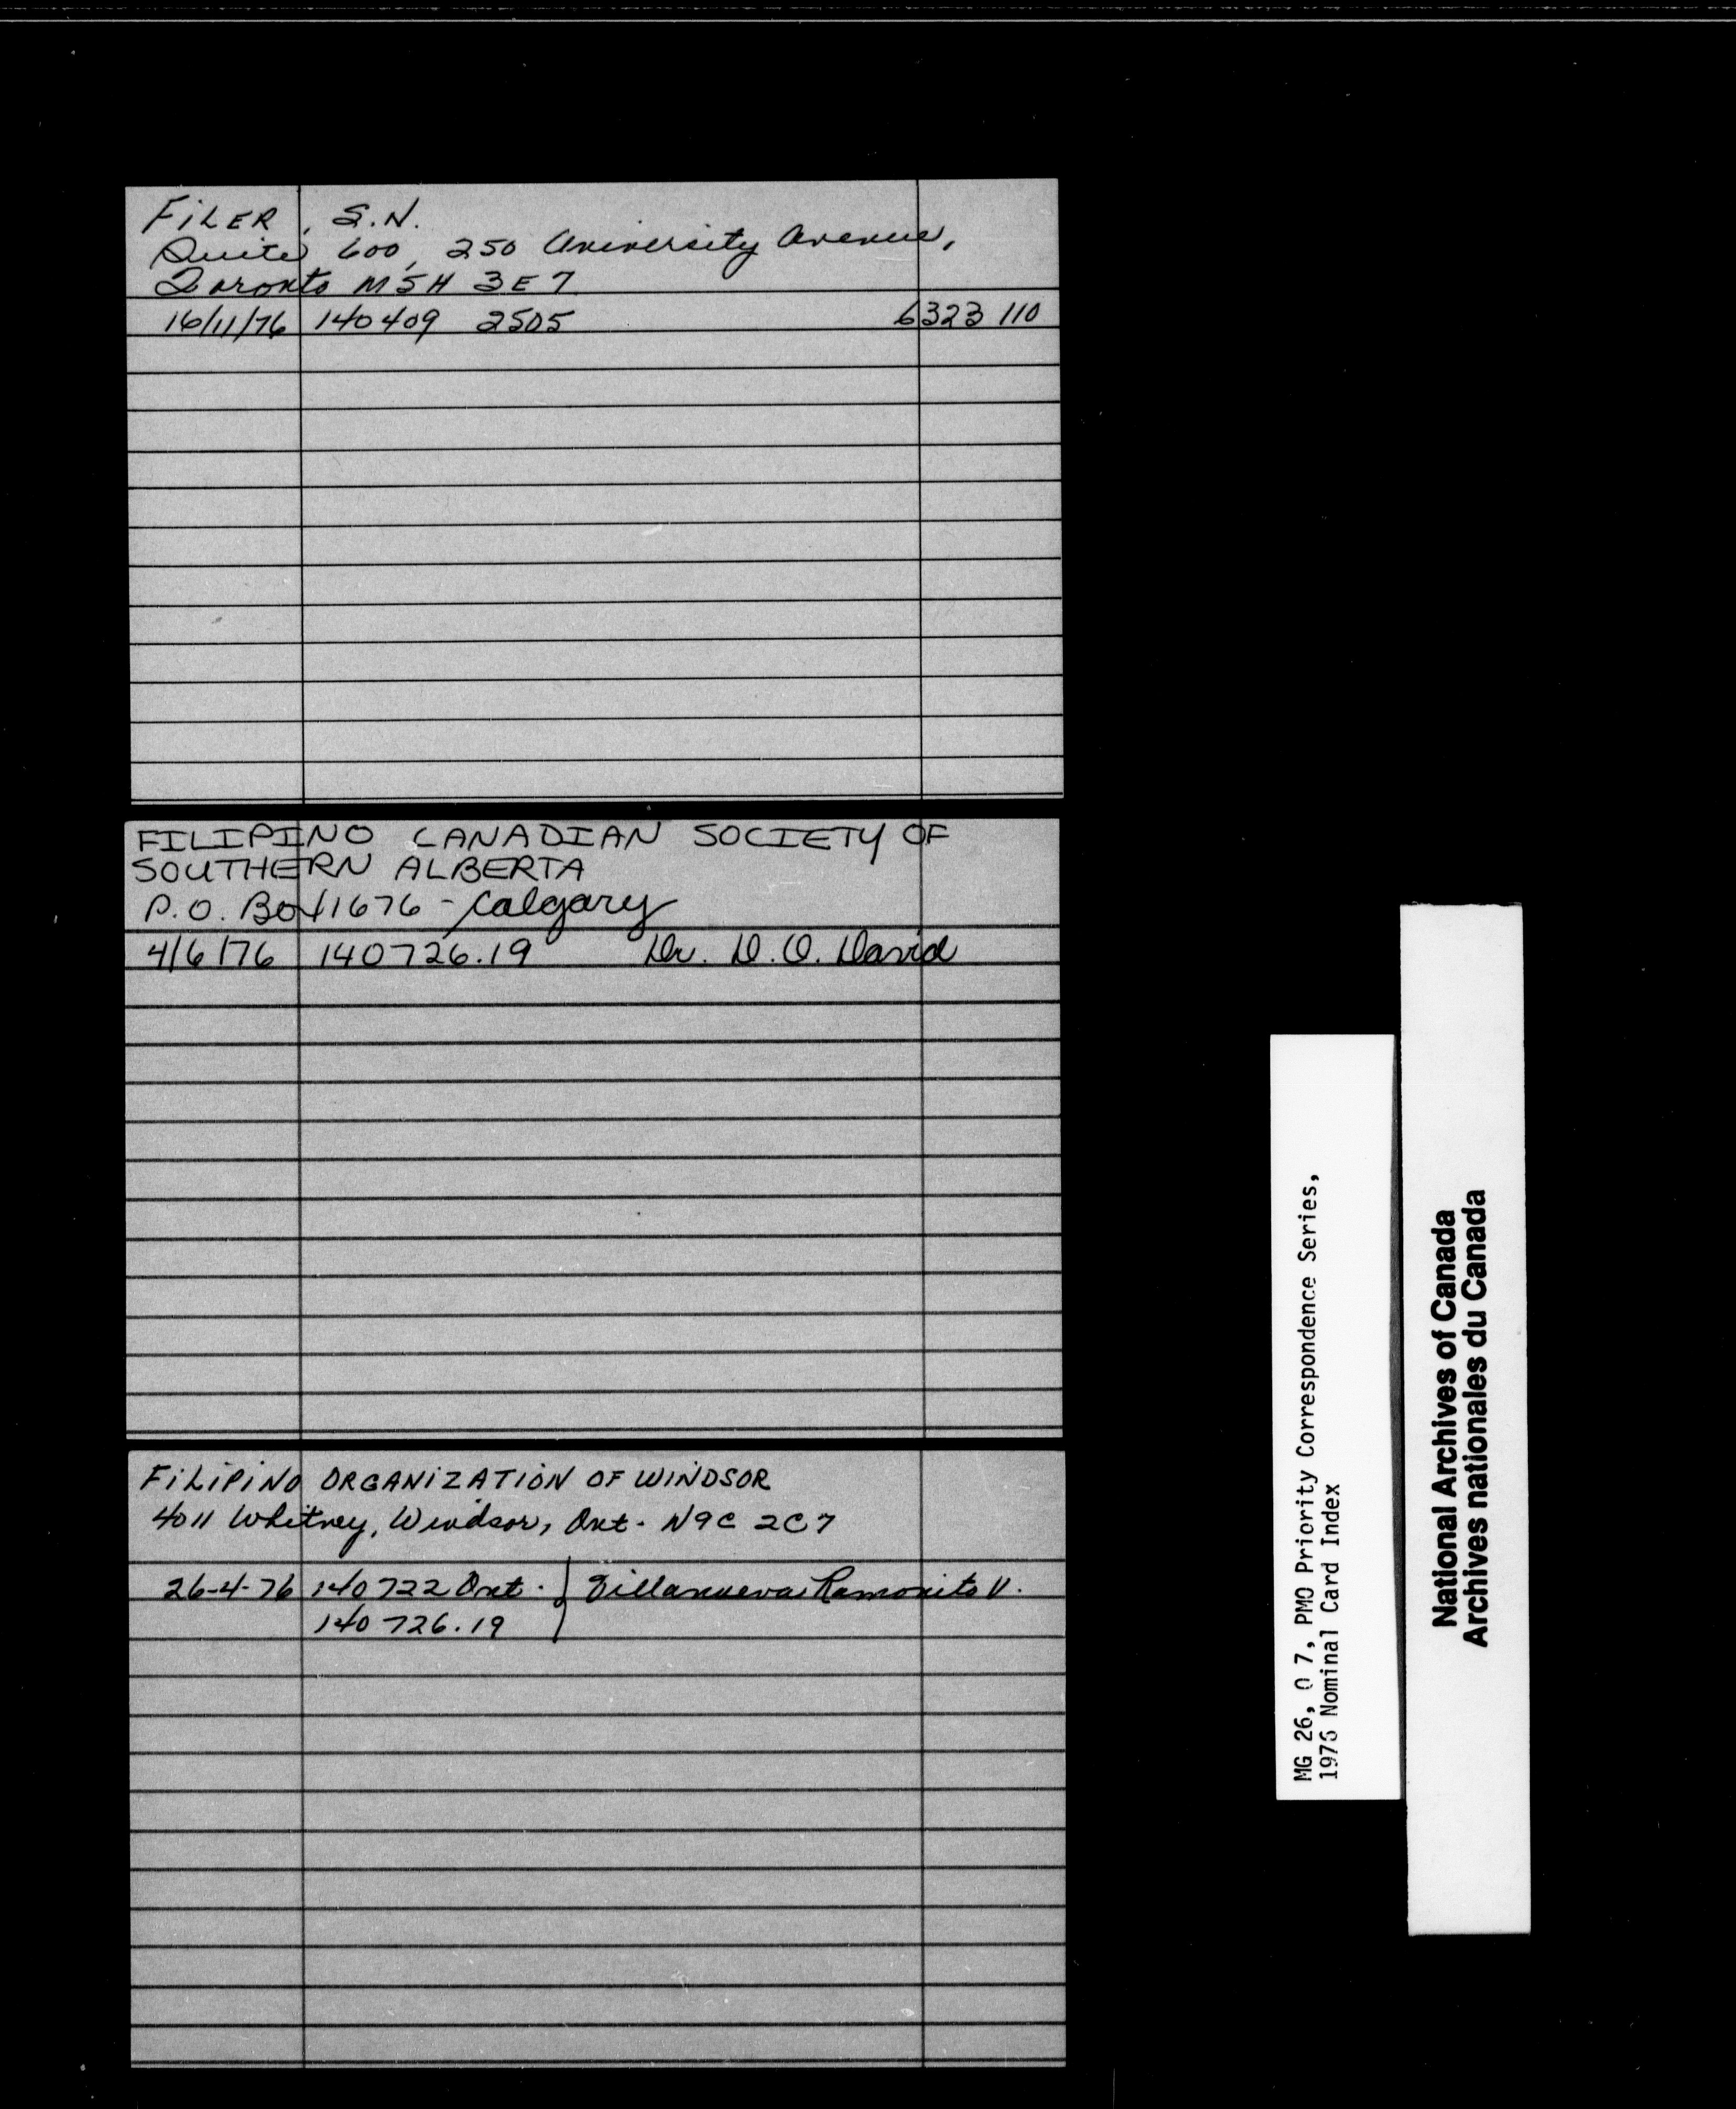 FILER, S.N.
Suite 600, 250 University Avenue,
Toronto M5H 3E7
16/11/76 140409 2505 6323 110
FILIPINO CANADIAN SOCIETY OF
SOUTHERN ALBERTA
P.O. Box 1676 - Calgary
4/6/76 140726.19 Dr. D.O. David
FILIPINO ORGANIZATION OF WINDSOR
4011 Whitney, Windsor, Ont. N9C 2C7
26-4-76 140722 Ont. } Villanueva Ramonito V.
140726.19
MG 26, O 7, PMO Priority Correspondence Series,
1976 Nominal Card Index
National Archives of Canada
Archives nationales du Canada